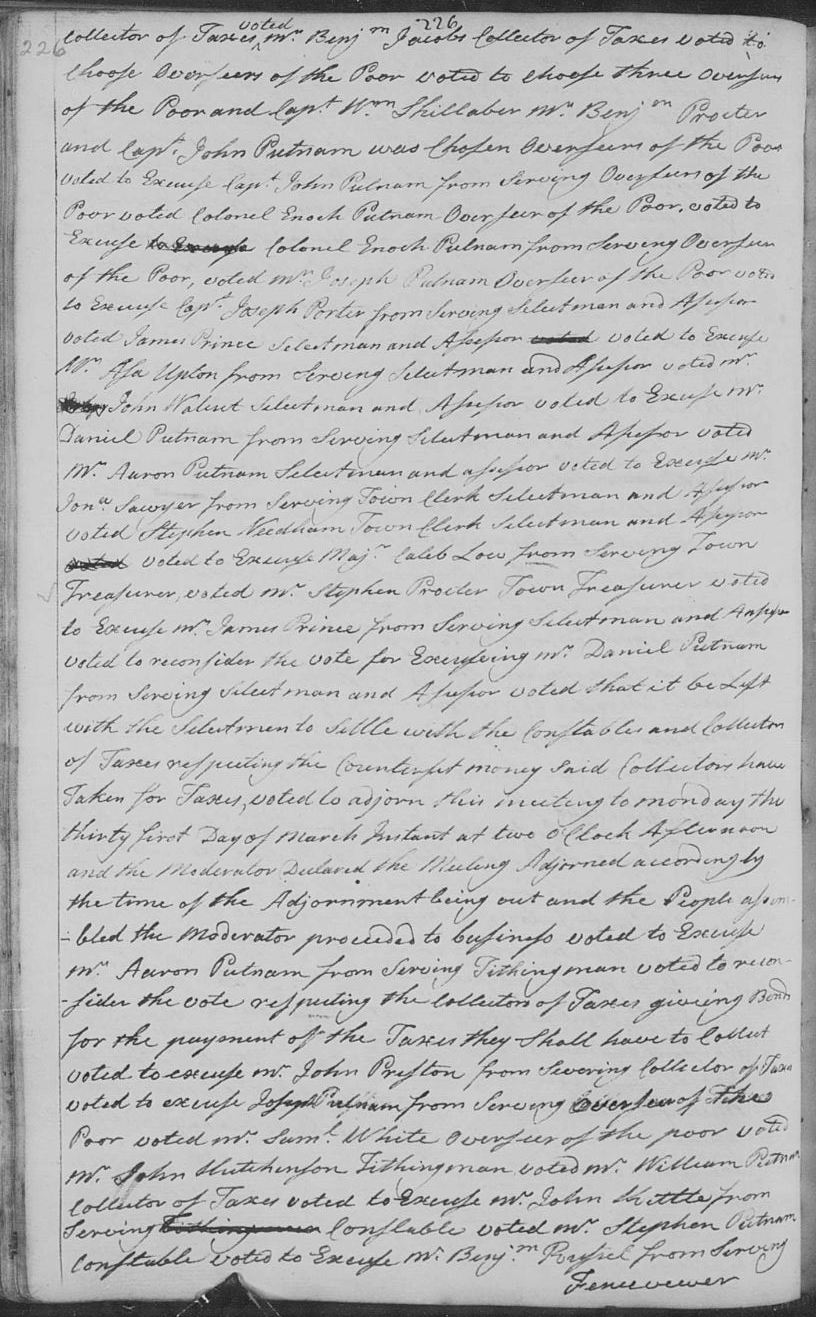 226
226
Collector of Taxes, voted mr. Benjm Jacobs Collector of Taxes voted to
Choose Overseers of the Poor voted to choose three Overseers
of the Poor and Capt. Wm Shillaber Mr. Benjm Procter
and Capt. John Putnam was Chosen Overseers of the Poor
voted to Excuse Capt John Putnam from Serving Overseers of the
Poor voted Colonel Enoch Putnam Overseer of the Poor. voted to
Excuse to Excuse Colonel Enoch Putnam from Serving Overseer
of the Poor, voted mr. Joseph Putnam Overseer of the Poor voted
to Excuse Capt. Joseph Porter from Serving Selectman and Assessor
voted James Prince Selectman and Assessor voted voted to Excuse
Mr. Asa Upton from Serving Selectman and Assessor voted mr.
John Walcut Selectman and Assessor voted to Excuse mr.
Daniel Putnam from Serving Selectman and Assessor voted
Mr. Aaron Putnam Selectman and assessor voted to Excuse mr.
Jona. Sawyer from Serving Town Clerk Selectman and Assessor
voted Stephen Needham Town Clerk Selectman and Assessor
voted voted to Excuse Majr. Caleb Low from Serving Town
Treasurer, voted mr. Stephen Procter Town Treasurer voted
to Excuse mr. James Prince from Serving Selectman and Assessor
voted to reconsider the vote for Excuseing mr. Daniel Putnam
from Serving Selectman and Assessor voted that it be Left
with the Selectmen to Settle with the Constables and Collectors
of Taxes respecting the Counterfit money Said Collectors have
Taken for Taxes, voted to adjorn this meeting to monday the
thirty first Day of March Instant at two oClock Afternoon
and the Moderator Declared the Meeting Adjorned accordingly
the time of the Adjornment being out and the People assem-
-bled the Moderator proceeded to business voted to Excuse
mr. Aaron Putnam from Serving Tithingman voted to recon-
-sider the vote respecting the Collectors of Taxes giveing Bonds
for the payment of the Taxes they Shall have to Collect
voted to excuse mr. John Preston from Severing Collector of Taxes
voted to excuse Joseph Putnam from Serving Overseer of the
Poor voted mr. Saml. White Overseer of the poor voted
mr. John Hutchenson Tithingman voted mr. William Putnam
Collector of Taxes voted to Excuse mr. John Kettle from
Serving Tithingman Constable voted mr. Stephen Putnam
Constable voted to Excuse Mr. Benjm. Russel from Serving
Fenceviewer